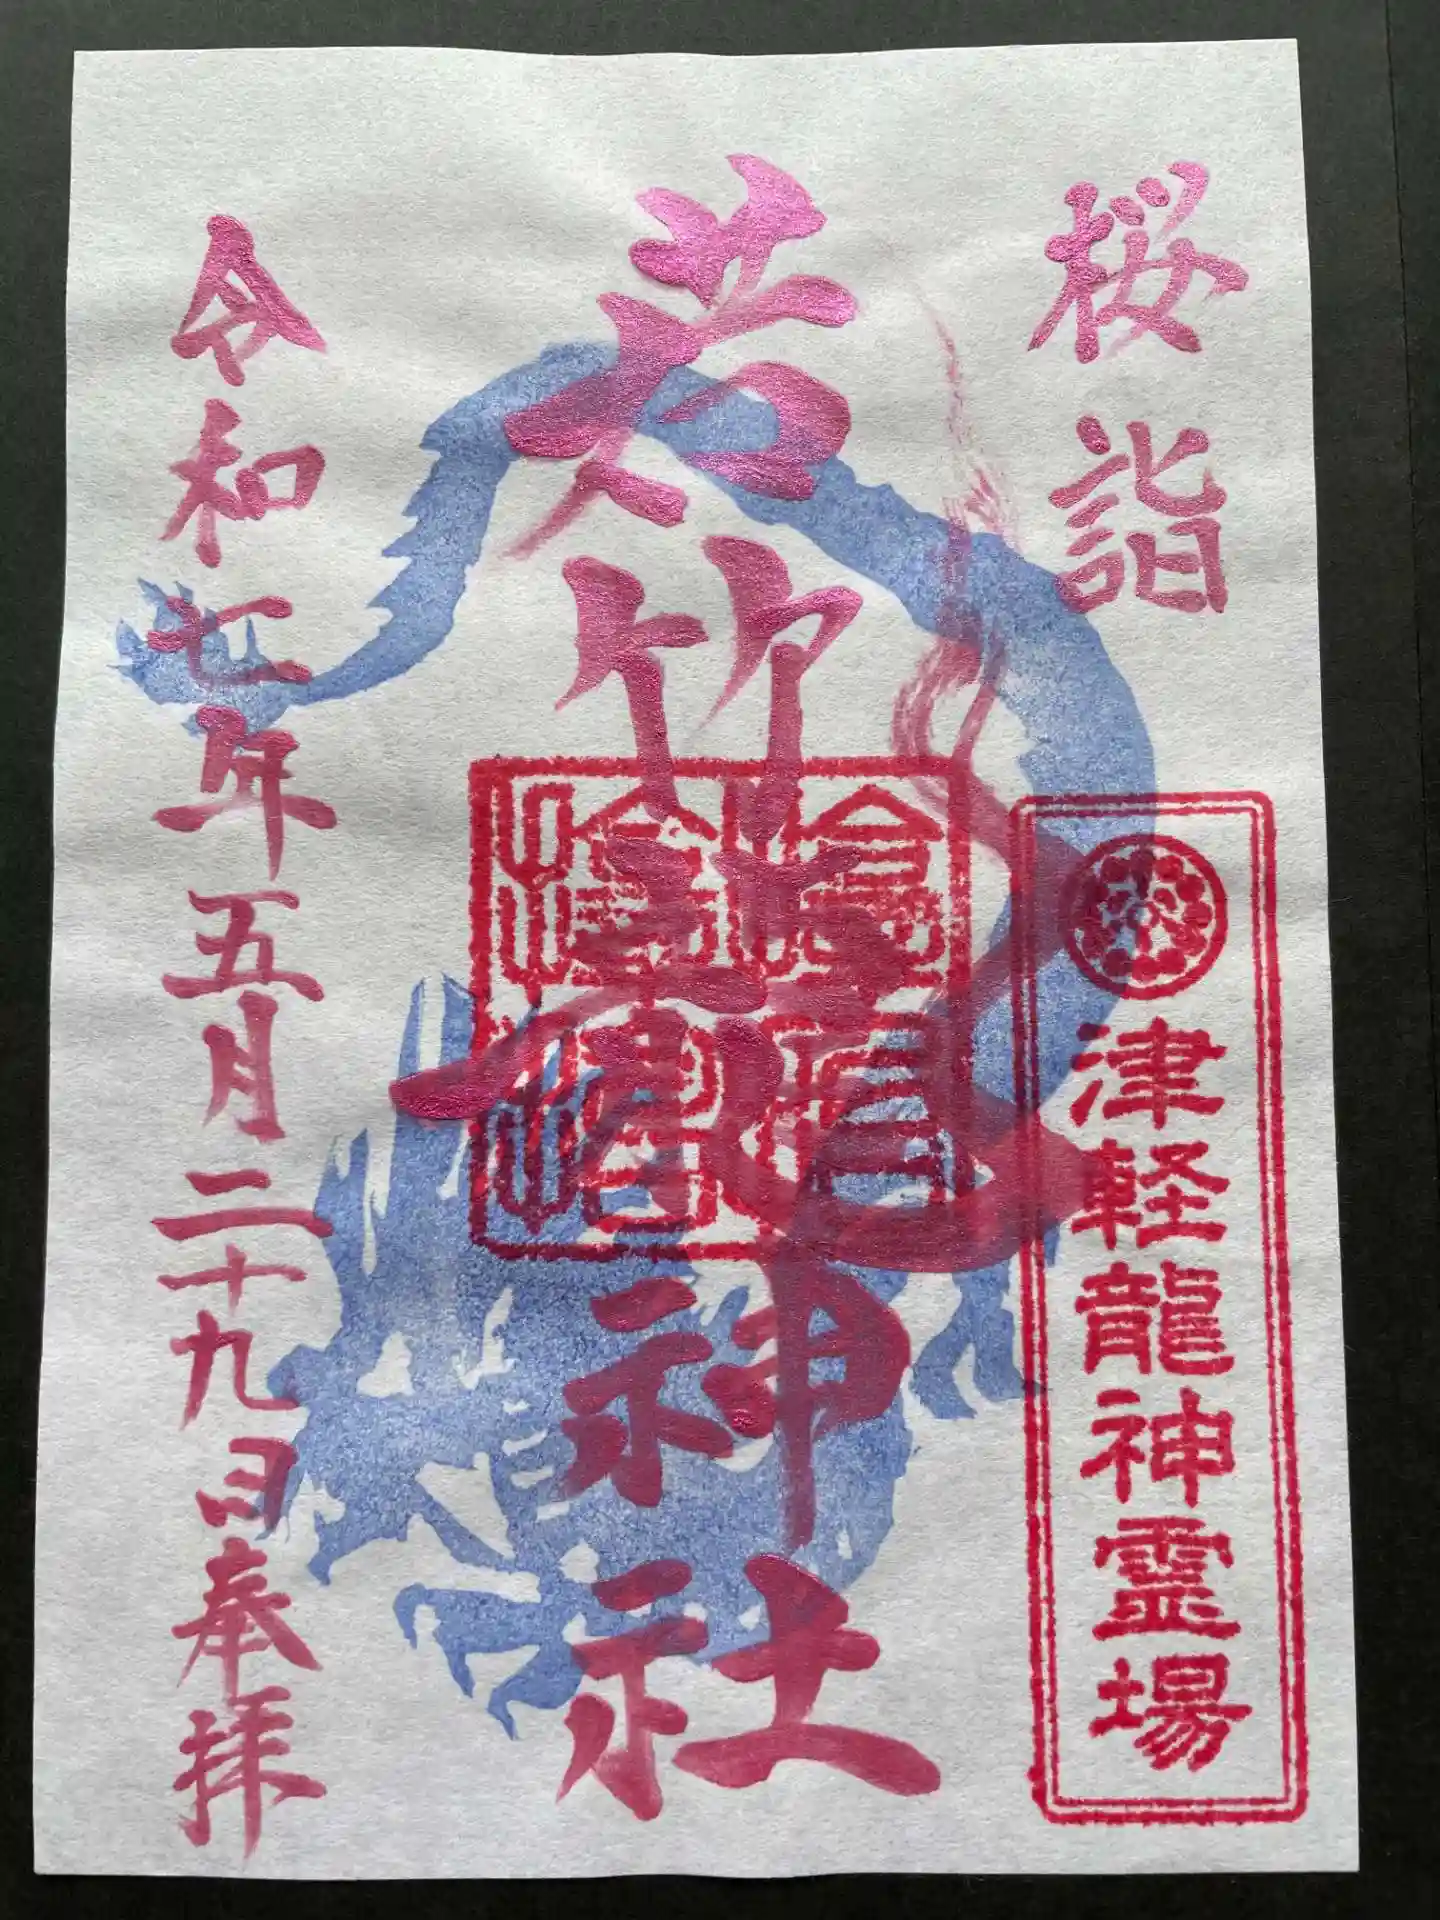 桜詣
津軽龍神霊場
若竹神社
令和七年五月二十九日奉拝